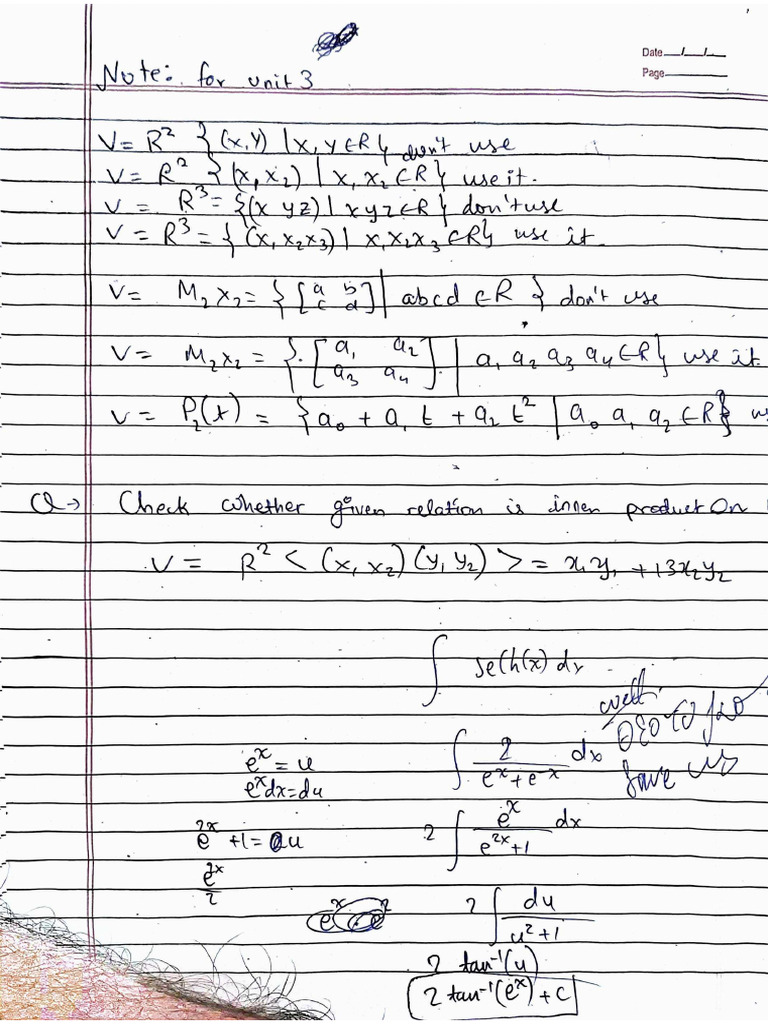 Date / / 
Page
Note: for unit 3
V = R² {(x,y) | x, y ∈ R} don't use
V = R² {(x₁ x₂) | x₁ x₂ ∈ R} use it.
V = R³ = {(x y z) | x y z ∈ R} don't use
V = R³ = {(x₁ x₂ x₃) | x₁ x₂ x₃ ∈ R} use it.
V = M₂x₂ = {[a b c d] | a b c d ∈ R} don't use
V = M₂x₂ = {[a₁ a₂ a₃ a₄] | a₁ a₂ a₃ a₄ ∈ R} use it.
V = P₂(t) = {a₀ + a₁ t + a₂ t² | a₀ a₁ a₂ ∈ R}
Q → Check whether given relation is inner product on
V = R² < (x₁ x₂) (y₁ y₂) > = x₁y₁ + 13x₂y₂
∫ sech(x) dx
eˣ = u
∫ 2/(eˣ + e⁻ˣ) dx
eˣdx = du
save us
2 ∫ eˣ/(e²ˣ + 1) dx
e²ˣ + 1 = u
e²ˣ/2
2 ∫ du/(u² + 1)
2 tan⁻¹(u)
2 tan⁻¹(eˣ) + c